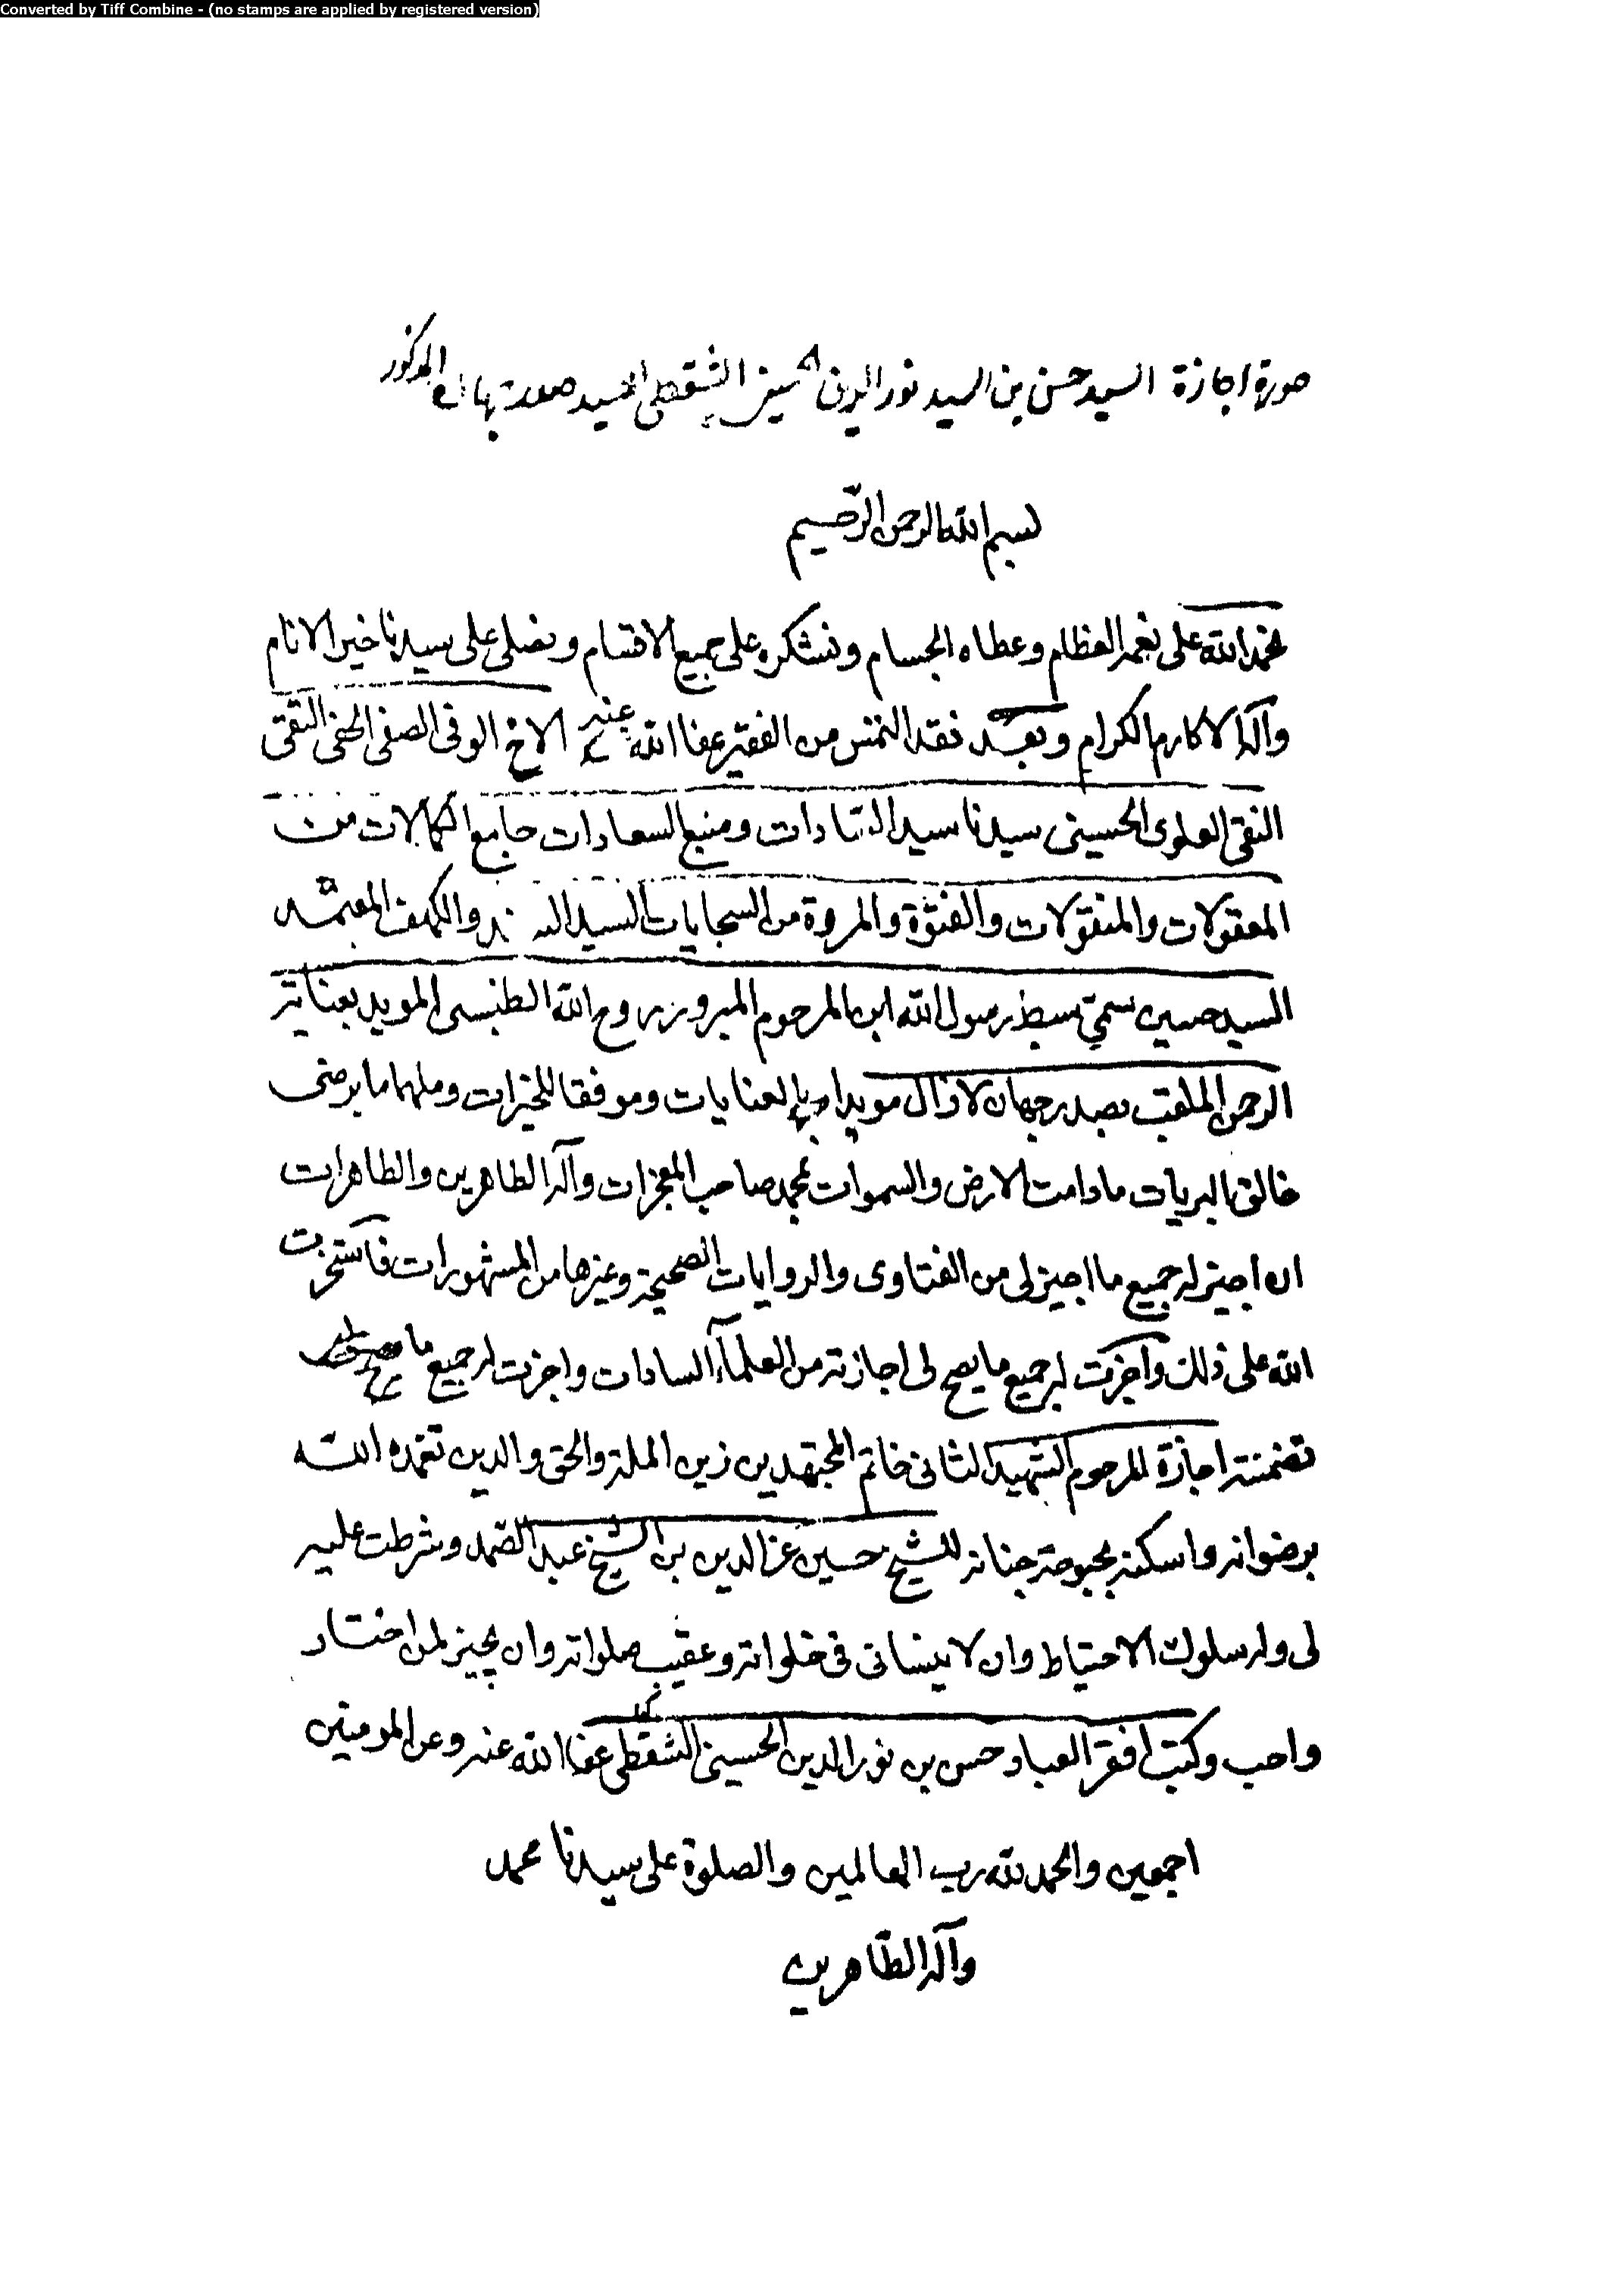 Converted by Tiff Combine - (no stamps are applied by registered version)
صورة اجازة السيد حسن بن السيد نور الدين الشقطى للسيد المذكور
بسم الله الرحمن الرحيم
نحمد الله على نعمه العظام وعطاه الجسام ونشكره على جميع الاقسام ونصلى على سيدنا خير الانام
وآله الاكارم الكرام وبعد فقد التمس من الفقير عفا الله عنه الاخ الوفى الصفى الحفى التقى
النقى العلوى الحسينى سيدنا سيد السادات ومنبع السعادات جامع الكمالات من
المعقولات والمنقولات والفتوة والمروة من السجايات السيد السند والكهف المعتمد
السيد حسين سمى سبط رسول الله ابن المرحوم المبرور روح الله الطبسى المويد بعناية
الرحمن الملقب بصدر جهان لازال مويدا بالعنايات وموفقا للخيرات وملهما ما يرضى
خالق البريات مادامت الارض والسموات بمحمد صاحب المعجزات وآله الطاهرين والطاهرات
ان اجيز له جميع ما اجيز لى من الفتاوى والروايات الصحيحة وغيرها من المشهورات فاستخرت
الله على ذلك وآجزت له جميع ما يصح لى اجازته من العلماء السادات واجزت له جميع ما
تضمنته اجازة المرحوم الشهيد الثانى خاتم المجتهدين زين الملة والحق والدين تغمده الله
برضوانه واسكنه بحبوحة جنانه للشيخ حسين عز الدين بن الشيخ عبد الصمد وشرطت عليه
لى وله سلوك الاحتياط وان لا ينسانى فى خلواته وعقيب صلواته وان يجيز لمن اختار
واحب وكتب افقر العباد حسن بن نور الدين الحسينى الشقطى عفا الله عنه وعن المومنين
اجمعين والحمد لله رب العالمين والصلوة على سيدنا محمد
وآله الطاهرين